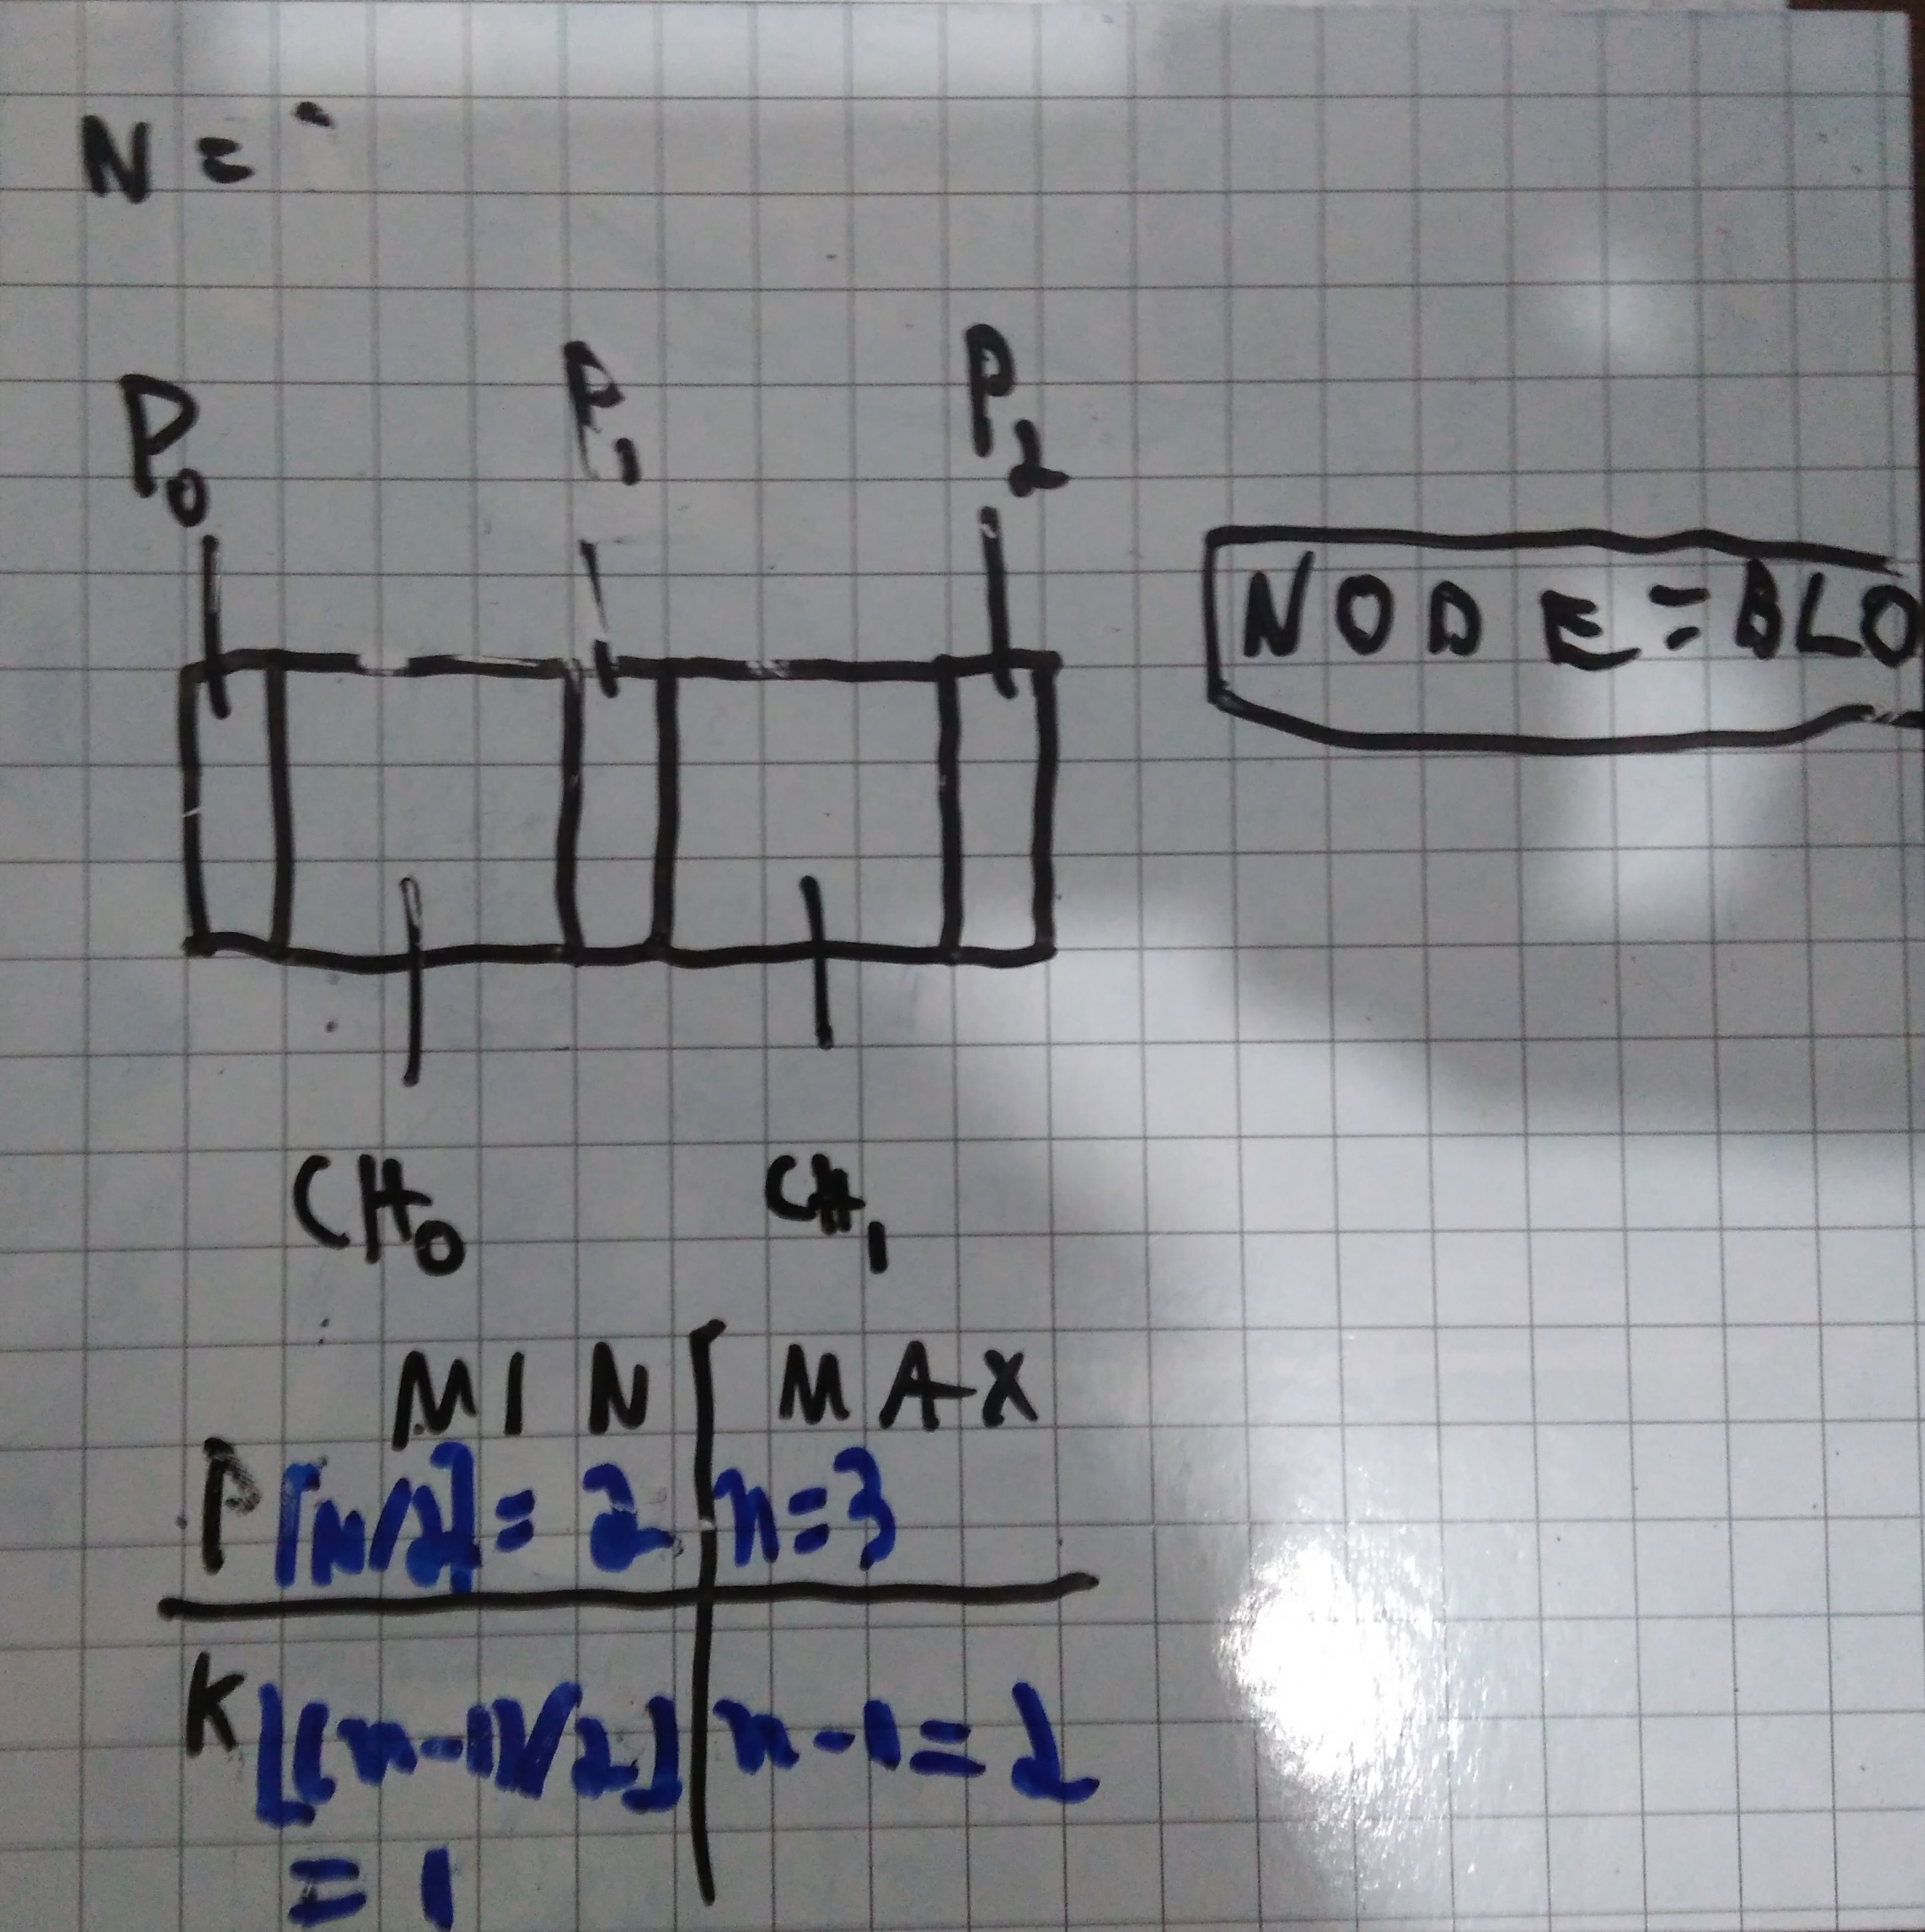 N =
P0 P1 P2
NODE = BLO
CH0 CH1
MIN MAX
P ⌈n/2⌉ = 2 n = 3
K ⌊(n-1)/2⌋ n-1 = 2
= 1